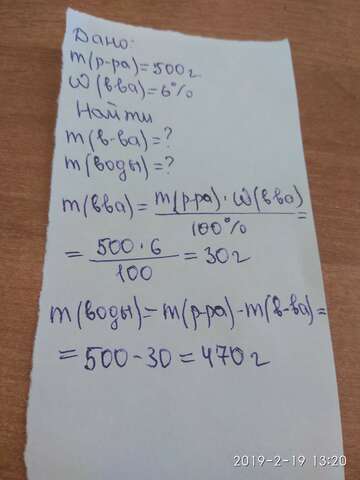 Дано:
m(р-ра)=500г
W(вва)=6%
Найти
m(в-ва)=?
m(воды)=?
m(вва)=m(р-ра)·W(вва)/100%=
=500·6/100=30г
m(воды)=m(р-ра)-m(в-ва)=
=500-30=470г
2019-2-19 13:20